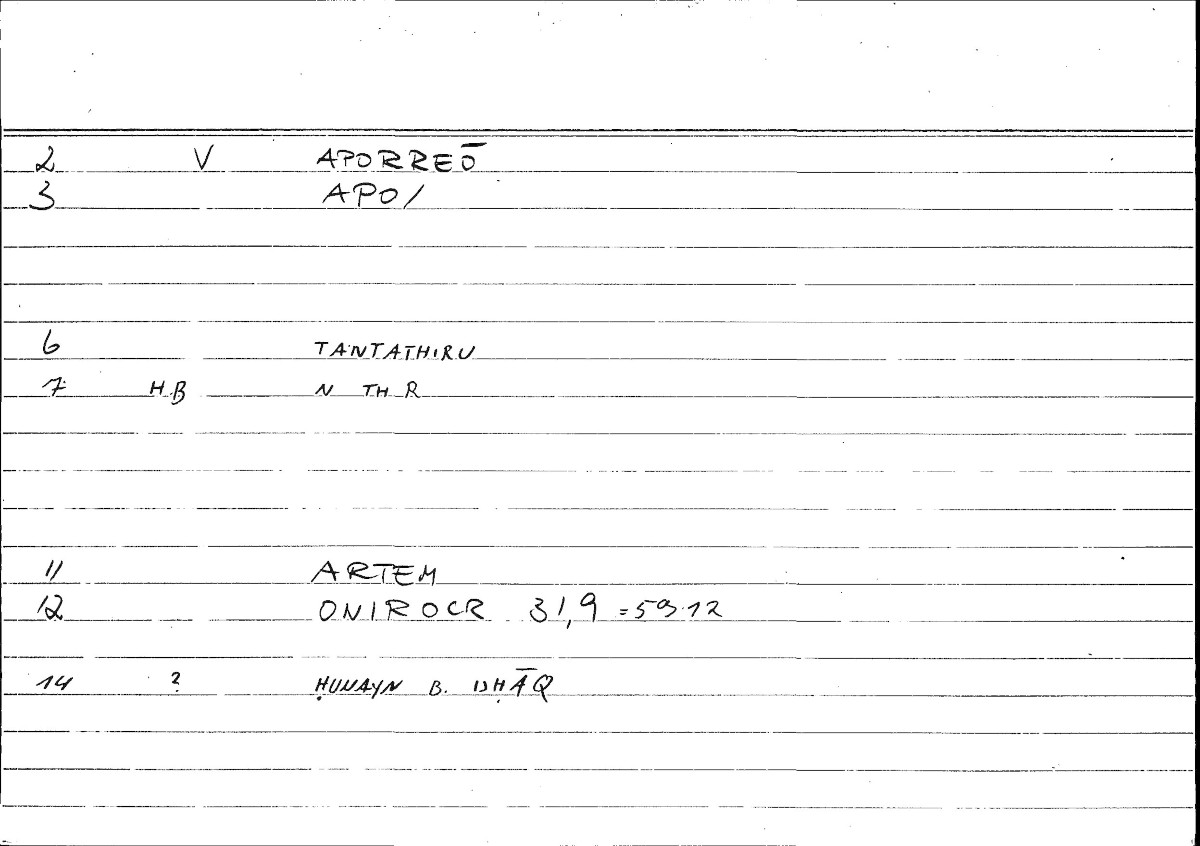 2 V APORREŌ
3 APO/
6 TANTATHIRU
7 HB N TH R
11 ARTEM
12 ONIROCR 31,9 = 59.12
14 ? ḤUNAYN B. ISḤĀQ